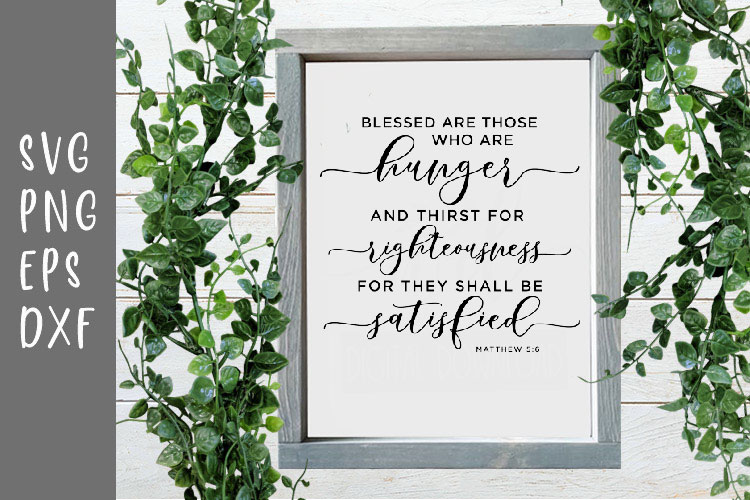 SVG
PNG
EPS
DXF
BLESSED ARE THOSE
WHO ARE
hunger
AND THIRST FOR
righteousness
FOR THEY SHALL BE
satisfied
MATTHEW 5:6
DIGITAL DOWNLOAD